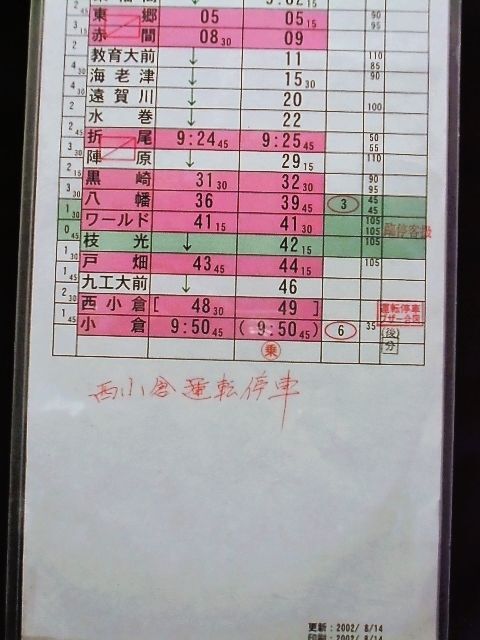 9:02 15
2 45 東郷 05 05 15 90 95
3 15 赤間 08 30 09
2 教育大前 ↓ 11 110 85
4 30 海老津 ↓ 15 30 90
4 30 遠賀川 ↓ 20 100
2 水巻 ↓ 22
2 45 折尾 9:24 45 9:25 45 50 55
3 30 陣原 ↓ 29 15 110
3 15 黒崎 31 30 32 30 90 95
3 30 八幡 36 39 45 3 45 45
1 30 ワールド 41 15 41 30 105 105 臨停客扱
0 45 枝光 ↓ 42 15 105
1 30 戸畑 43 45 44 15 105
1 45 九工大前 ↓ 46
2 30 西小倉 [ 48 30 49 ] 運転停車 ブザー合図
1 45 小倉 9:50 45 (9:50 45) 6 35 (後) 分
乗
西小倉運転停車
更新:2002/ 8/14
印刷:2002/ 8/14